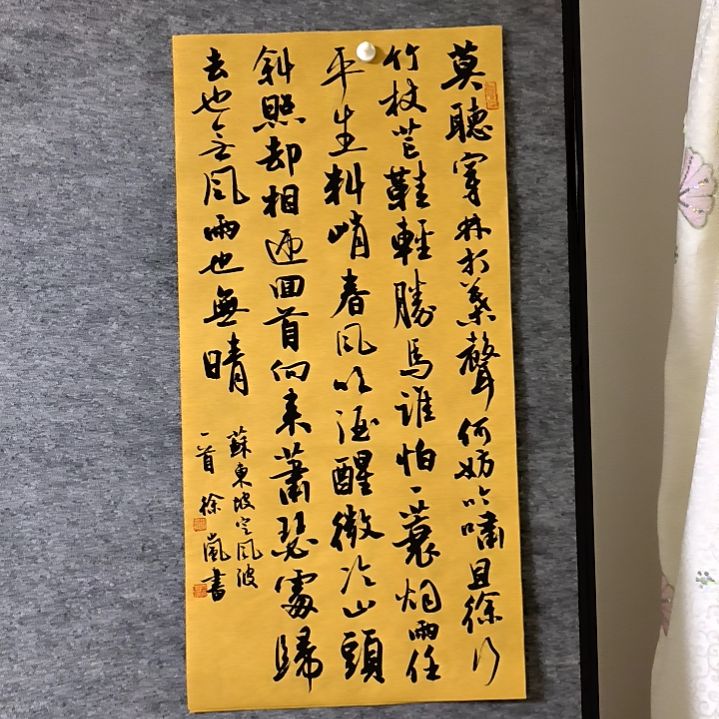 莫聽穿林打葉聲何妨吟嘯且徐行
竹杖芒鞋輕勝馬誰怕一蓑烟雨任
平生料峭春風吹酒醒微冷山頭
斜照却相迎回首向来蕭瑟處歸
去也無風雨也無晴
蘇東坡定風波
一首 徐嵐書